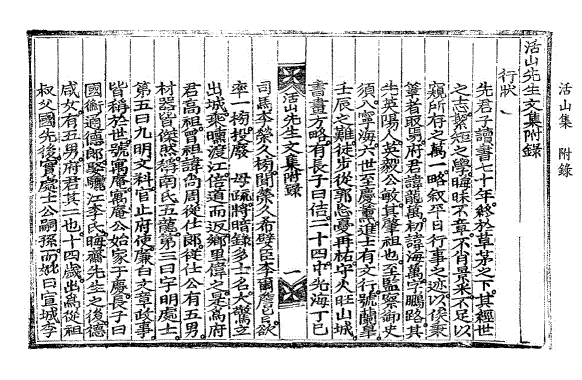 活山集 附錄
活山先生文集附錄
行狀
先君子讀書七十年終於草茅之下其經世
之志之學晦昧不章不肖景來不足以
窺所存之萬一略敘平日行事之迹以俟秉
筆者取焉府君諱龍萬初諱海萬字鵬路其
先英陽人英毅公敏其肇祖也至監察御史
須入寧海六世至慶薰進士有文行號蘭皐
壬辰之難徒步從郭忘憂再祐守火旺山城
書畫方略有長子曰佶二十四中光海丁巳
活山先生文集附錄 一
司馬李榮久榜聞榮久希嬖臣李爾瞻旨欲
率一榜投廢 母疏將暗錄多士名大驚立
出城乘曛渡江倍道而返鄉里偉之是爲府
君高祖曾祖諱尙周從仕郎從仕公有五男
材器皆傑然號南氏五龍第三曰宇明處士
第五曰九明文科官止府使廉白文章政事
皆稱於世號寓庵寓庵公始家于慶長子曰
國衡通德郎娶驪江李氏晦齋先生之後德
咸女有五男府君其二也十四歲出爲從祖
叔父國先後實處士公嗣孫而妣曰宣城李